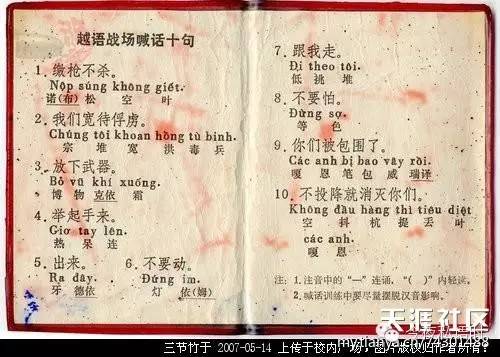 越语战场喊话十句
1. 缴枪不杀。
Nộp súng không giết.
诺(布) 松 空 叶
2. 我们宽待俘虏。
Chúng tôi khoan hồng tù binh.
宗 堆 宽 洪 毒 兵
3. 放下武器。
Bỏ vũ khí xuống.
博 物 克依 霜
4. 举起手来。
Giơ tay lên.
热 呆 连
5. 出来。 6. 不要动。
Ra đây. Đứng im.
牙 德依 灯 依(姆)
7. 跟我走。
Đi theo tôi.
低 挑 堆
8. 不要怕。
Đừng sợ.
等 色
9. 你们被包围了。
Các anh bị bao vây rồi.
嘎 恩 笔 包 威 瑞译
10. 不投降就消灭你们。
Không đầu hàng thì tiêu diệt
空 抖 杭 提 丢 叶
các anh.
嘎 恩
注: 1. 注音中的“一”连诵,“( )”内轻读。
2. 喊话训练中要尽量摆脱汉音影响。
天涯社区
三节竹于 2007-05-14 上传于校内广场,图片版权归作者所有!